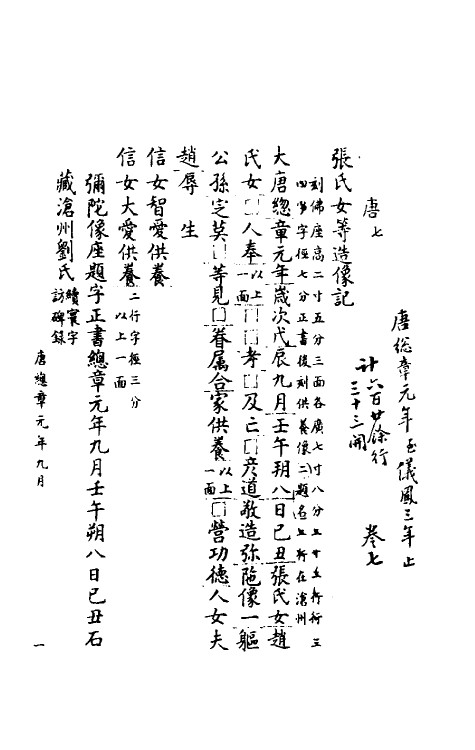 唐總章元年至儀鳳三年止
計六百廿餘行
三十三開
卷七
唐七
張氏女等造像記
刻佛座高二寸五分三面各廣七寸八分
四字徑七分正書後刻供養像二題名在滄州
大唐總章元年歲次戊辰九月壬午朔八日己丑張氏女趙
氏女□人奉以上一面□□考□及亡□彥道敬造弥陁像一軀
公孫定莫□等見□眷属合家供養以上一面□營功德人女夫
趙辱生
信女智愛供養
信女大愛供養二行字徑三分以上一面
彌陀像座題字正書總章元年九月壬午朔八日己丑石
藏滄州劉氏續寰宇訪碑錄
唐總章元年九月
一